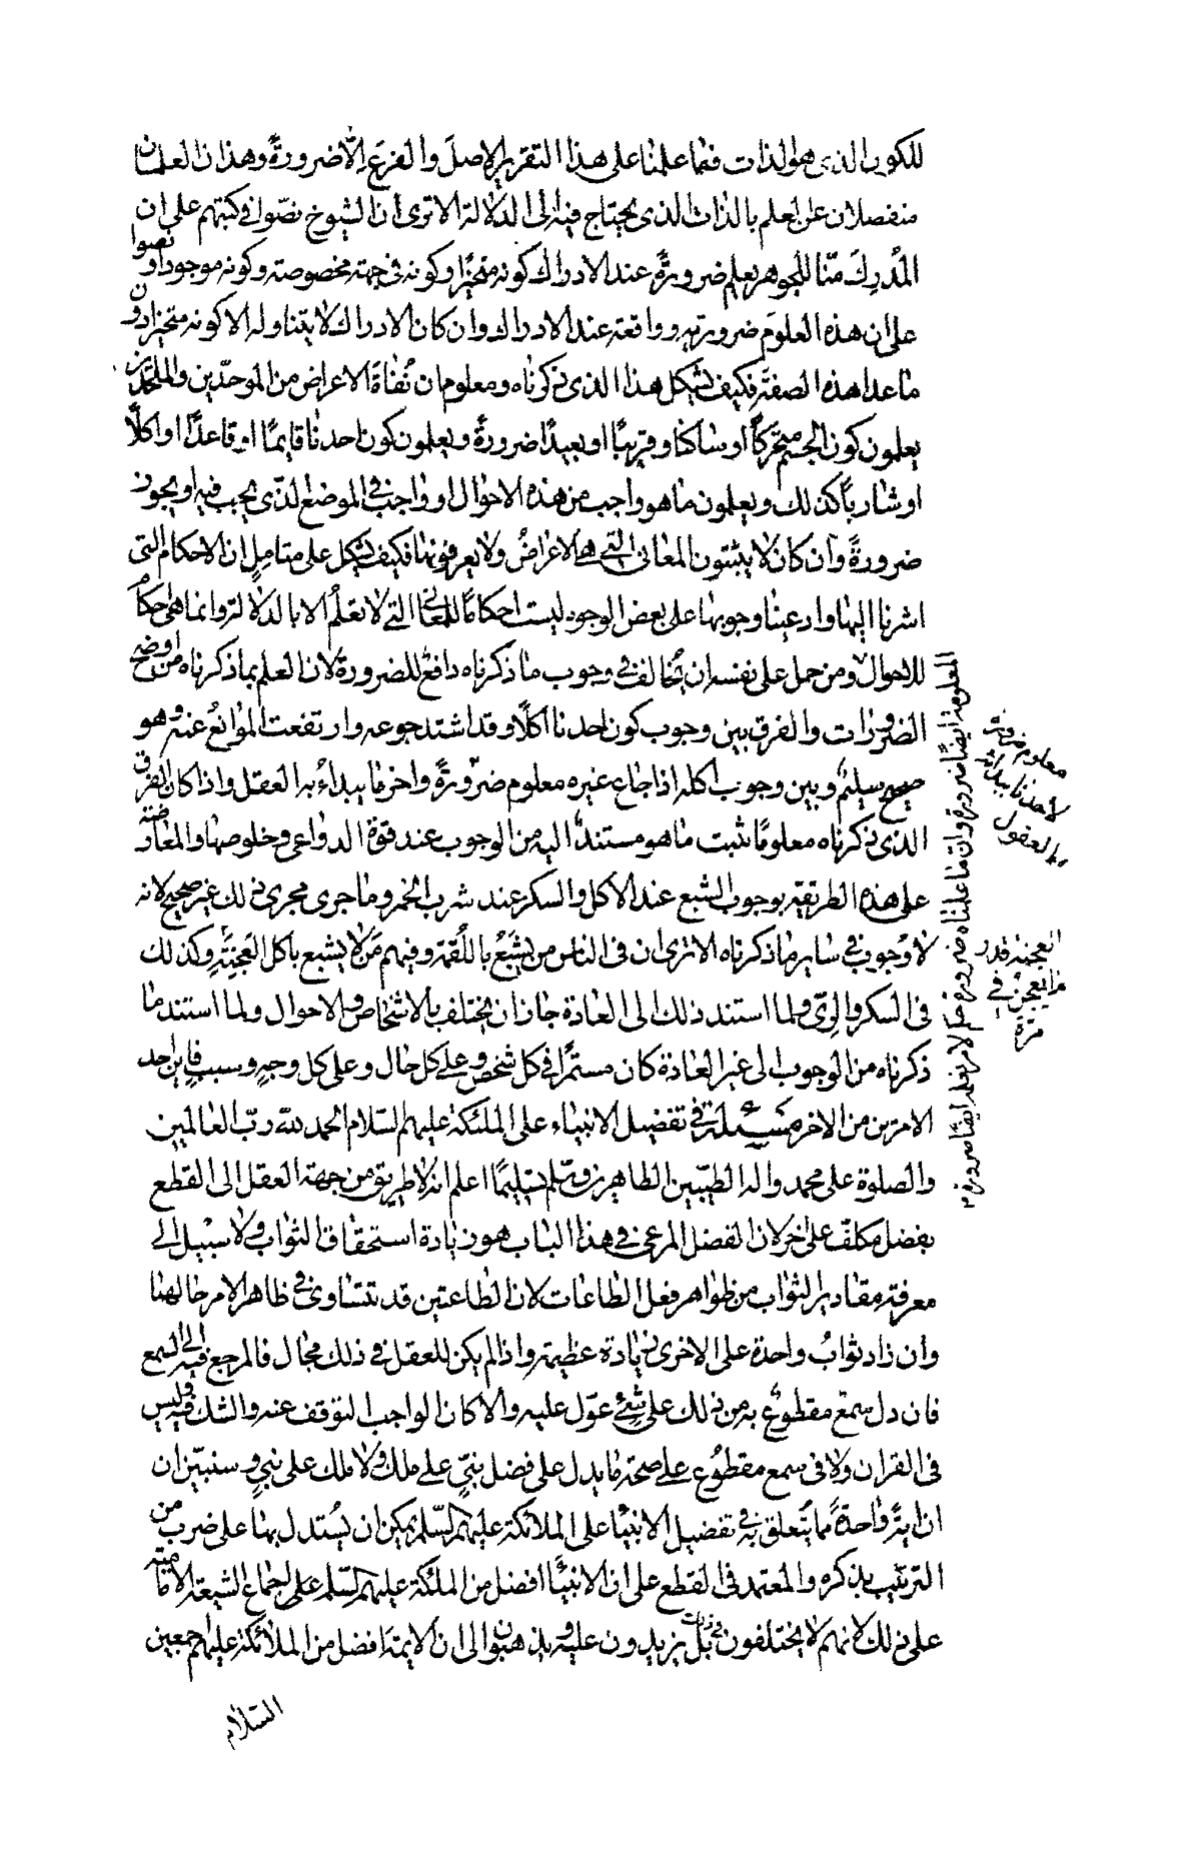 للكون الذي هو الذات فما علمنا على هذا التقرير الاصلَ والفرعَ الّا ضرورةً وهذان العلمان
منفصلان عن العلم بالذات الذي يحتاج فيه الى الدلالة الا ترى ان الشيوخ نصّوا في كتبهم على ان
المُدرِكَ منّا للجوهر يعلم ضرورةً عند الادراك كونه متحيزًا وكونه في جهة مخصوصة وكونه موجودا ونصوا
على ان هذه العلومَ ضرورية وواقعة عند الادراك وان كان الادراك لا يتناوله الا كونه متحيزا دون
ما عدا هذه الصفة فكيف يشكل هذا الذي ذكرناه ومعلوم ان نُفاةَ الاعراض من الموحّدين والملحدين
يعلمون كون الجسم متحركًا او ساكنا وقريبًا او بعيدًا ضرورةً ويعلمون كون احدنا قايمًا او قاعدًا او اكلًا
او شاربًا كذلك ويعلمون ما هو واجب من هذه الاحوال او واجب في الموضع الذي يجب فيه او يجوز
ضرورةً وان كان لا يثبتون المعاني التي هي الاعراضُ ولا يعرفونها فكيف يشكل على متاملٍ ان الاحكام التي
اشرنا اليها وادعينا وجوبها على بعض الوجوه ليست احكامًا للمعاني التي لا تعلمُ الا بالدلالة وانما هي احكامٌ
للاحوال ومن حمل على نفسه ان يُخالف في وجوب ما ذكرناه دافعٌ للضرورة لان العلم بما ذكرناه من اوضح
الضرورات والفرق بين وجوب كون احدنا اكلًا وقد اشتد جوعه وارتفعت الموانعُ عنه وهو
صحيح سليمٌ وبين وجوب اكله اذا جاع غيره معلوم ضرورةً واخر ما يبداءُ به العقل واذا كان الفرق
الذي ذكرناه معلومًا ثبت ما هو مستندٌ اليه من الوجوب عند قوة الدواعي وخلوصها والمعارضة
على هذه الطريقة بوجوب الشبع عند الاكل والسكر عند شرب الخمر وما جرى مجرى ذلك غير صحيح لانه
لا وجوب في ساير ما ذكرناه الا ترى ان في الناس من يشبَعُ باللُقمة وفيهم مَن لا يشبع باكل العَجِنَةِ وكذلك
في السكر والرِيّ ولما استند ذلك الى العادة جاز ان يختلف بالاشخاص والاحوال ولما استند ما
ذكرناه من الوجوب الى غير العادة كان مستمرًا في كل شخص وعلى كل حال وعلى كل وجهٍ وسببٍ فاين احد
الامرين من الاخر مسئلة في تفضيل الانبياء على الملئكة عليهم السّلام الحمد لله ربّ العالمين
والصلوة على محمد واله الطيّبين الطاهرين وسلّم تسليمًا اعلم انه لا طريق من جهة العقل الى القطع
بفضل مكلّف على اخر لان الفضل المرعي في هذا الباب هو زيادة استحقاق الثواب ولا سبيل الى
معرفة مقادير الثواب من ظواهر فعل الطاعات لان الطاعتين قد تتساوى في ظاهر الامر حالهما
وان زاد ثوابُ واحدة على الاخرى زيادة عظيمة واذا لم يكن للعقل في ذلك مجال فالمرجع فيه الى السمع
فان دل سمع مقطوعٌ به من ذلك على شئ عوّل عليه والّا كان الواجب التوقف عنه والشك فيه وليس
في القران ولا في سمع مقطوع على صحته ما يدل على فضل نبيّ على ملك ولا ملك على نبي وسنبيّن ان
ان ايةً واحدةً مما يُتعلق به في تفضيل الانبيا على الملائكة عليهم السّلم يمكن ان يُستدل بها على ضرب من
الترتيب نذكره والمعتمد في القطع على ان الانبيا افضل من الملئكة عليهم السّلم على اجماع الشيعة الامامية
على ذلك لانهم لا يختلفون في ذلك بل يزيدون عليه ويذهبون الى ان الايمة افضل من الملائكة عليهم اجمعين
السّلام
معلوم ضرورة
لاحدنا ببداية
العقول
العجنة قدر
ما يعجن في
مرّة